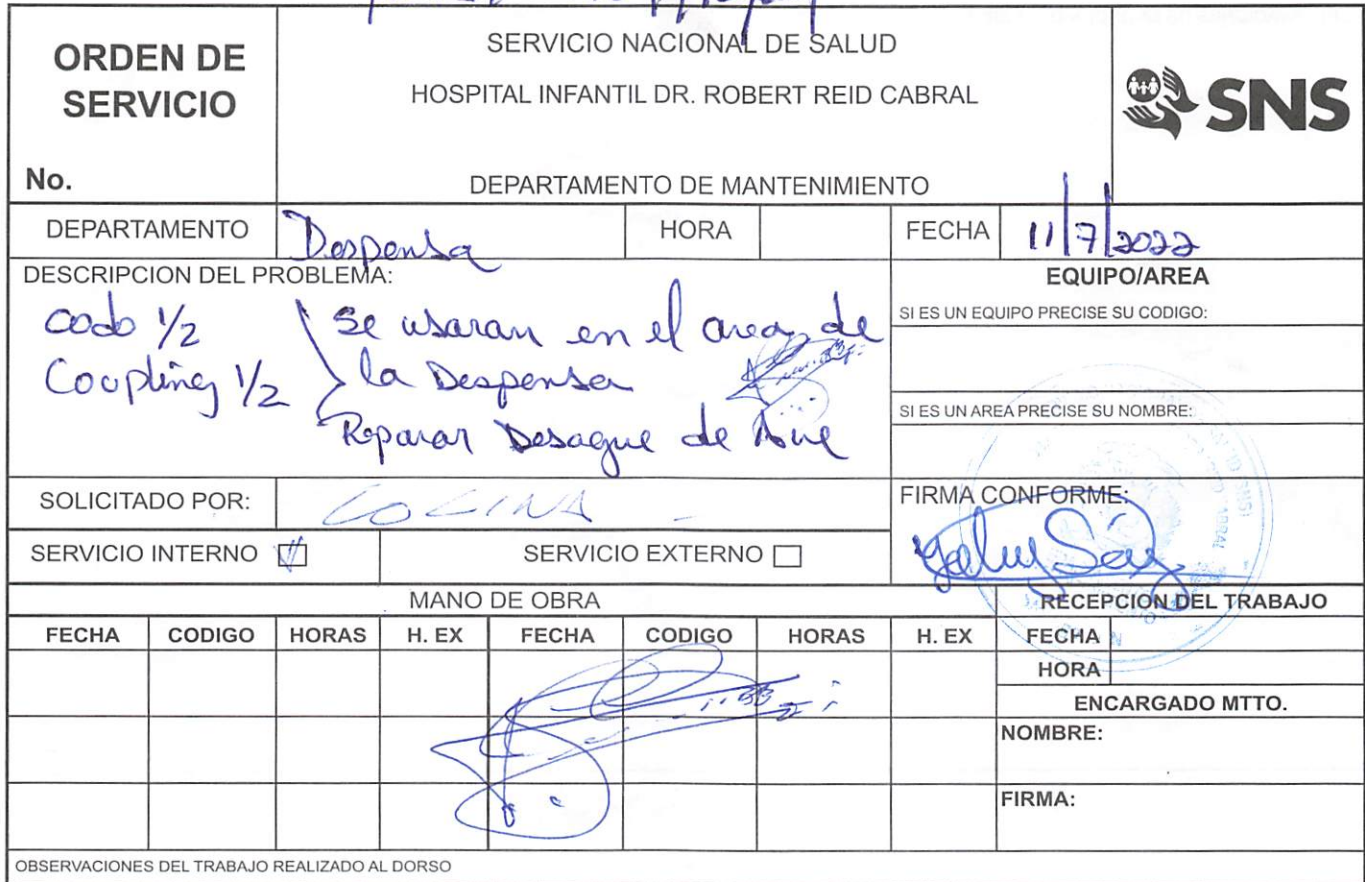 ORDEN DE
SERVICIO
No.
SERVICIO NACIONAL DE SALUD
HOSPITAL INFANTIL DR. ROBERT REID CABRAL
DEPARTAMENTO DE MANTENIMIENTO
SNS
DEPARTAMENTO Despensa HORA FECHA 11/7/2022
DESCRIPCION DEL PROBLEMA:
codo 1/2
Coupling 1/2
Se usaran en el area de
la Despensa
Reparar Desague de Aire
EQUIPO/AREA
SI ES UN EQUIPO PRECISE SU CODIGO:
SI ES UN AREA PRECISE SU NOMBRE:
SOLICITADO POR: COCINA
FIRMA CONFORME:
SERVICIO INTERNO SERVICIO EXTERNO
MANO DE OBRA RECEPCION DEL TRABAJO
FECHA CODIGO HORAS H. EX FECHA CODIGO HORAS H. EX FECHA
HORA
ENCARGADO MTTO.
NOMBRE:
FIRMA:
OBSERVACIONES DEL TRABAJO REALIZADO AL DORSO